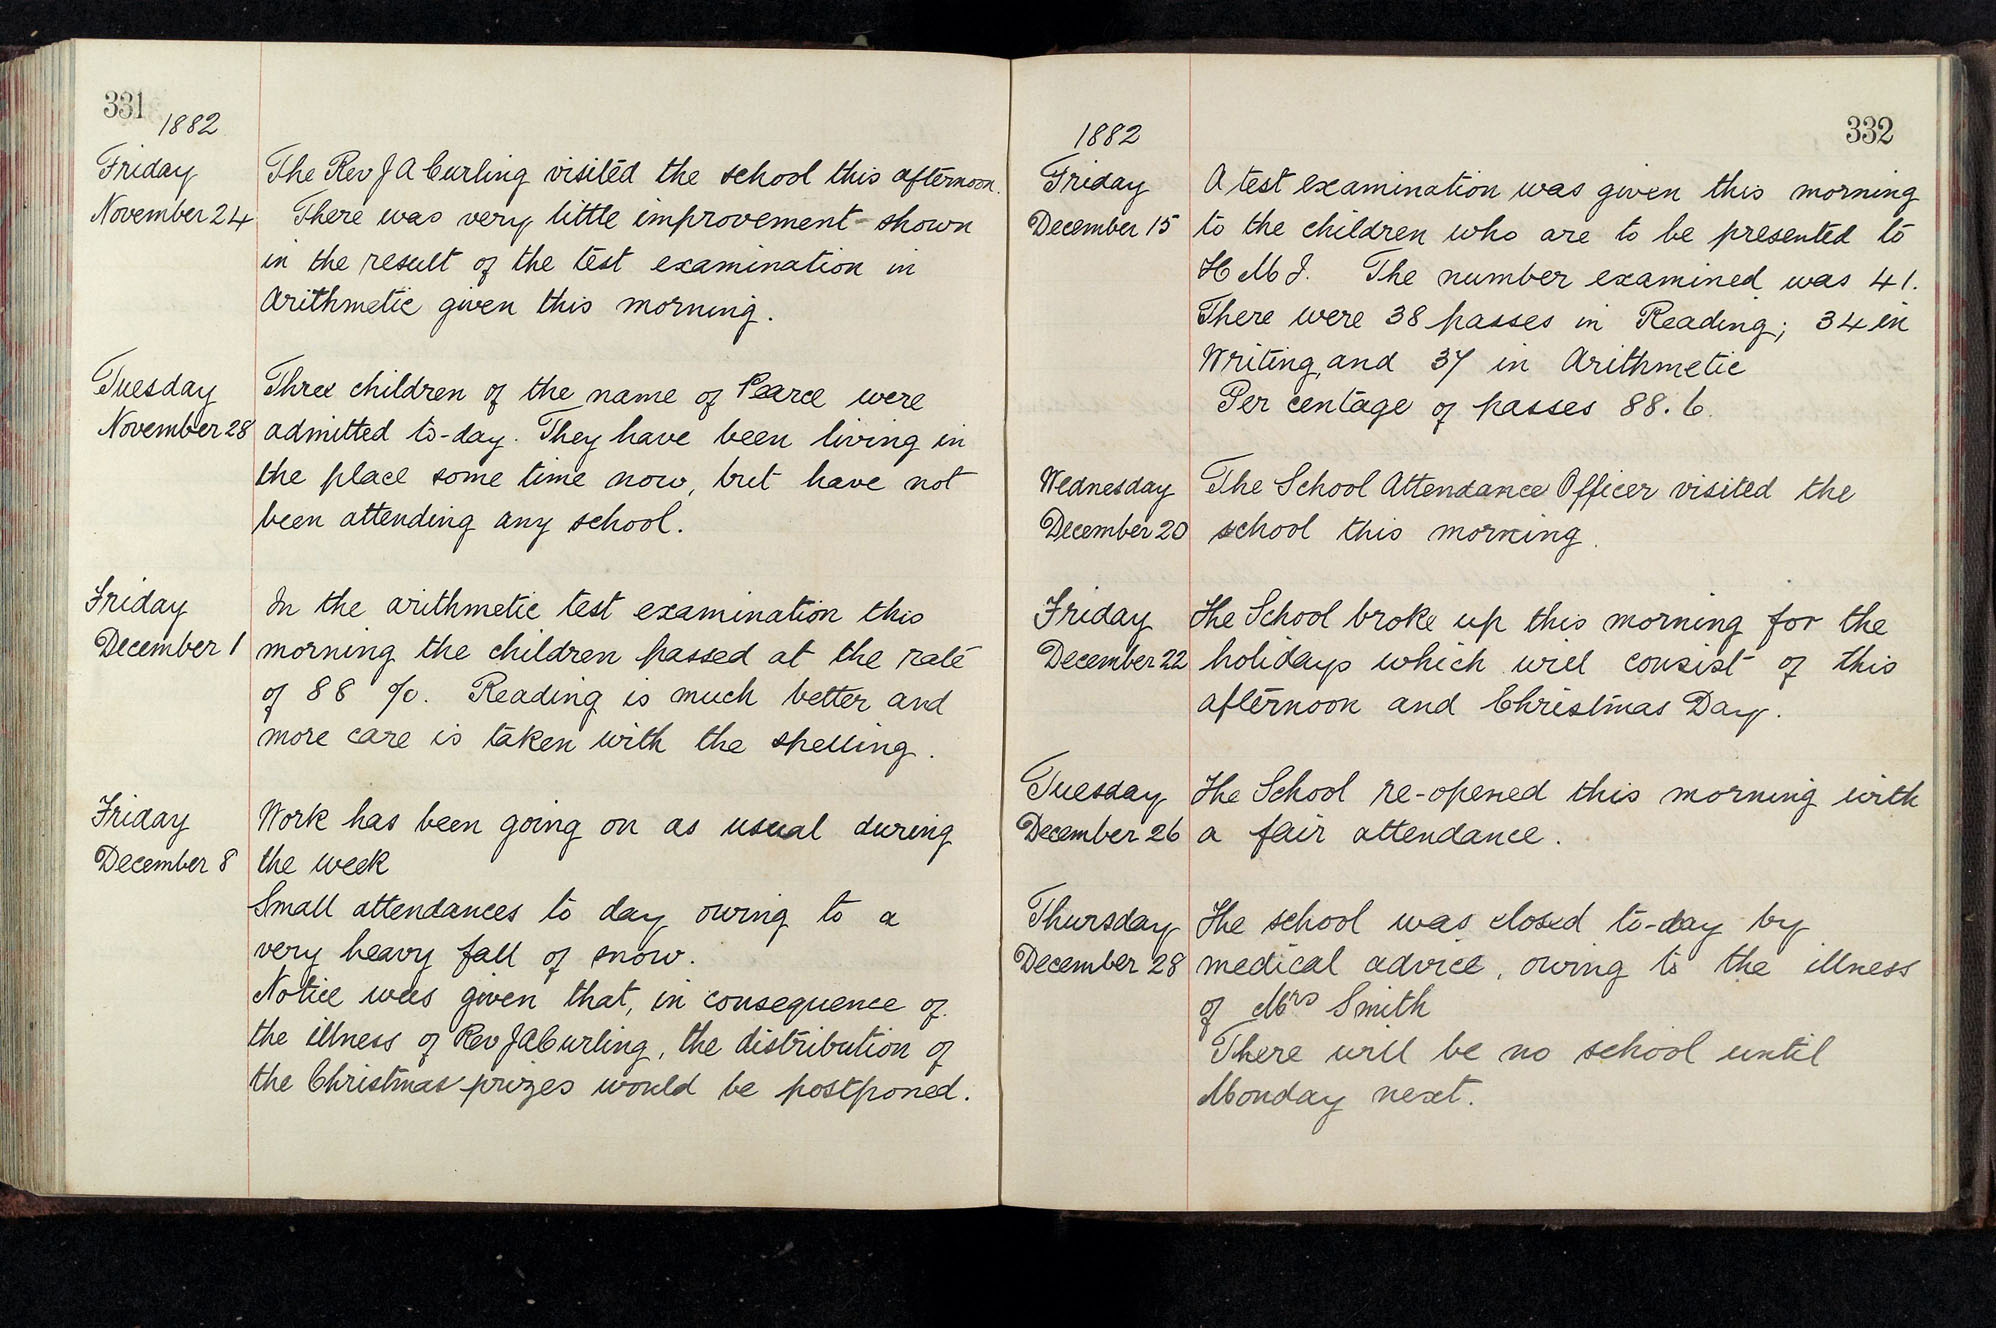 331
1882
Friday
November 24
The Rev J A Curling visited the school this afternoon.
There was very little improvement shown
in the result of the test examination in
Arithmetic given this morning.
Tuesday
November 28
Three children of the name of Pearce were
admitted to-day. They have been living in
the place some time now, but have not
been attending any school.
Friday
December 1
In the arithmetic test examination this
morning the children passed at the rate
of 88 %. Reading is much better and
more care is taken with the spelling.
Friday
December 8
Work has been going on as usual during
the week
Small attendances to day owing to a
very heavy fall of snow.
Notice was given that, in consequence of
the illness of Rev J A Curling, the distribution of
the Christmas prizes would be postponed.
332
1882
Friday
December 15
A test examination was given this morning
to the children who are to be presented to
H M I. The number examined was 41.
There were 38 passes in Reading; 34 in
Writing, and 37 in Arithmetic
Per centage of passes 88.6.
Wednesday
December 20
The School Attendance Officer visited the
school this morning.
Friday
December 22
The School broke up this morning for the
holidays which will consist of this
afternoon and Christmas Day.
Tuesday
December 26
The School re-opened this morning with
a fair attendance.
Thursday
December 28
The school was closed to-day by
medical advice, owing to the illness
of Mrs Smith
There will be no school until
Monday next.